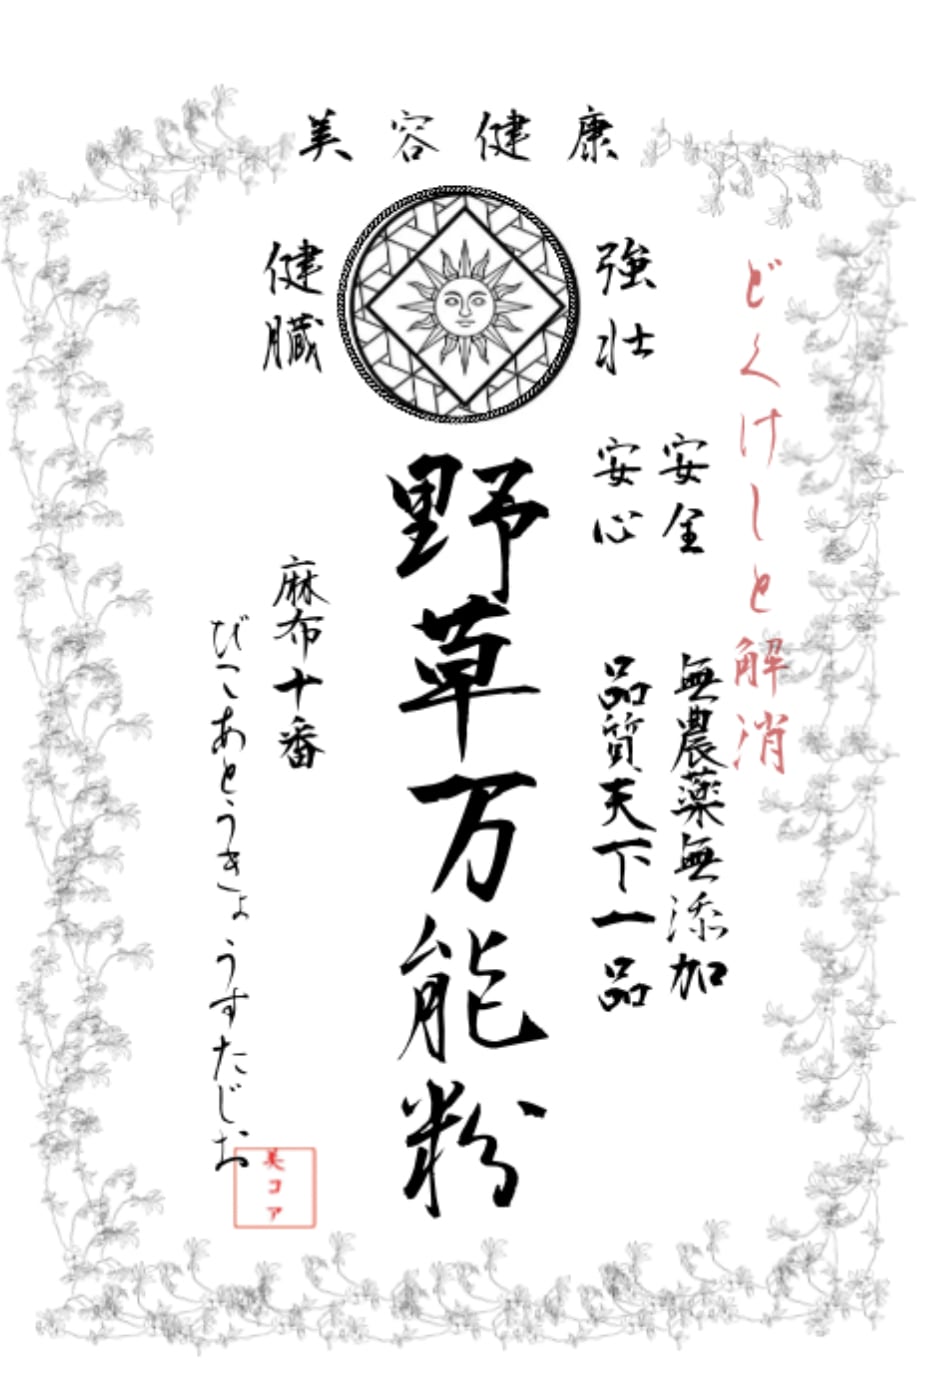 美容健康
強壮
健臓
どくけしと解消
安全 無農薬無添加
安心 品質天下一品
野草万能粉
麻布十番
びこあとうきょうすたじお
美コア